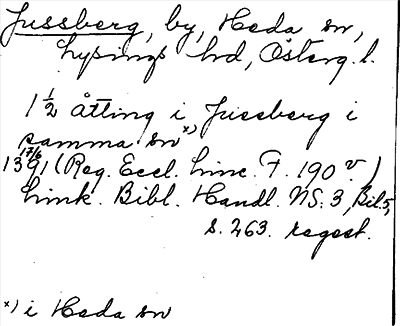 Jussberg, by, Heda sn,
Lysings hd, Österg. l.
1 1/2 åtting i Jussberg i
samma sn x)
1391 17/6 (Reg. Eccl. Linc. F. 190 v.)
Link. Bibl. Handl. NS. 3, Bil. 5,
s. 263. regest.
x) i Heda sn